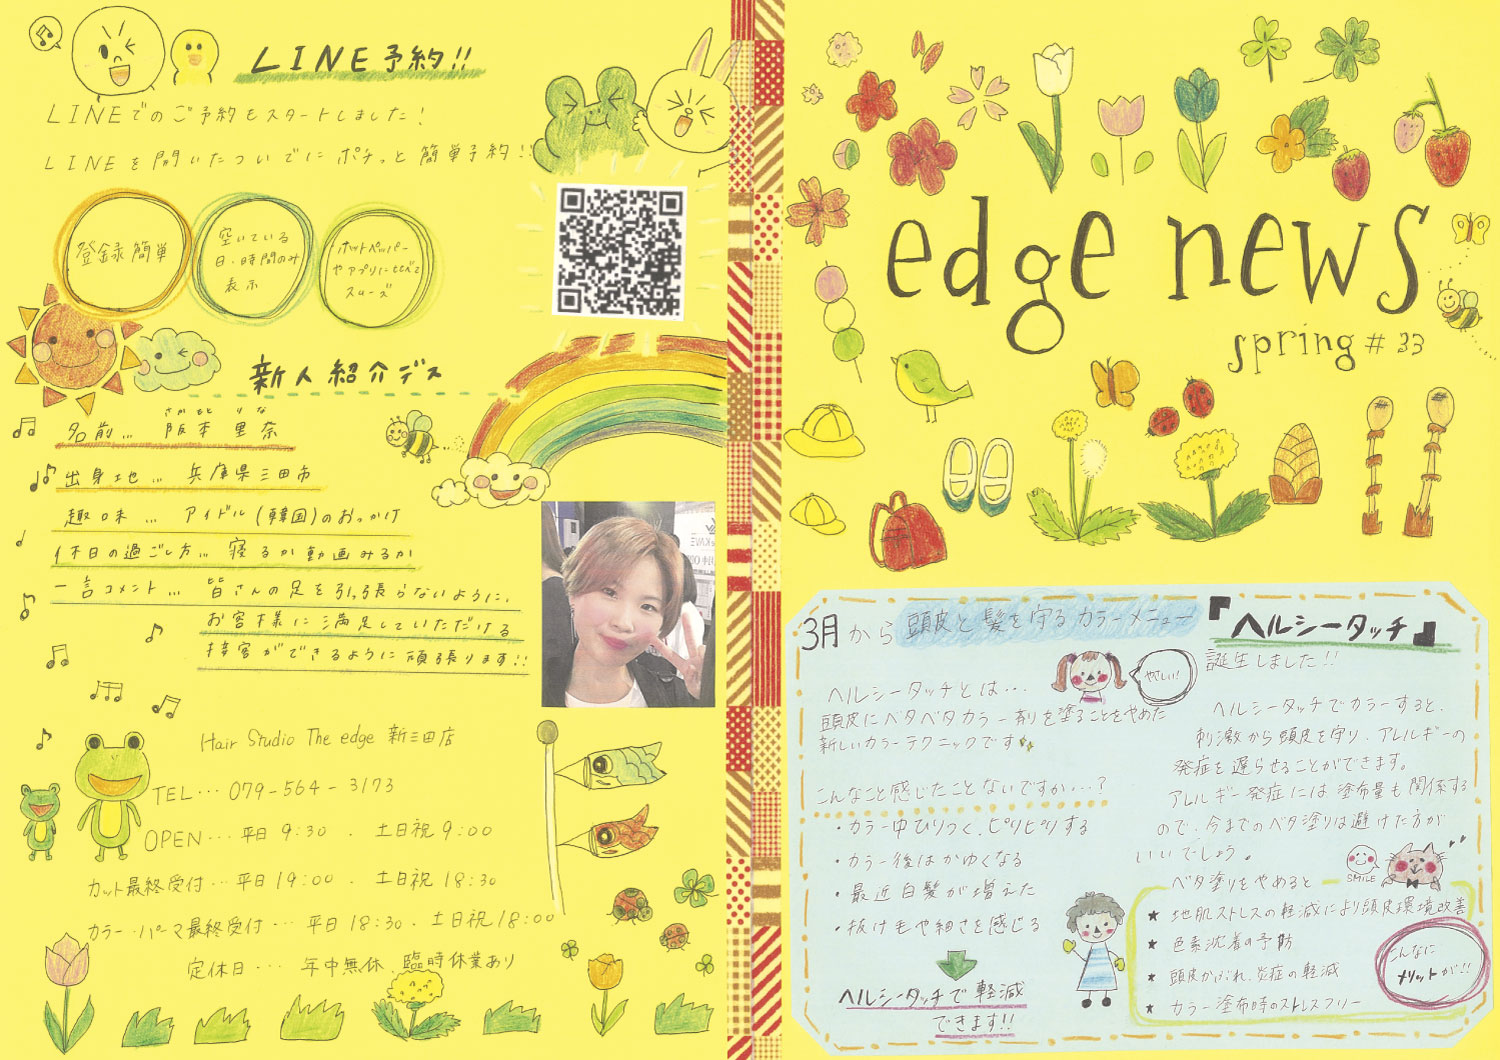 LINE予約!!
LINEでのご予約をスタートしました!
LINEを開いたついでにポチっと簡単予約!!
登録簡単
空いている
日、時間のみ
表示
ホットペッパー
やアプリに比べて
スムーズ
新人紹介デス
さかもと りな
名前… 阪本 里奈
出身地… 兵庫県三田市
趣味… アイドル(韓国)のおっかけ
休日の過ごし方… 寝るか動画みるか
一言コメント… 皆さんの足を引っ張らないように、
お客様に満足していただける
接客ができるように頑張ります!!
Hair Studio The edge 新三田店
TEL… 079-564-3173
OPEN… 平日 9:30 . 土日祝 9:00
カット最終受付… 平日 19:00 . 土日祝 18:30
カラー・パーマ最終受付… 平日 18:30 . 土日祝 18:00
定休日… 年中無休、臨時休業あり
edge news
spring #33
3月から頭皮と髪を守るカラーメニュー『ヘルシータッチ』
誕生しました!!
ヘルシータッチとは…
やさしい!
頭皮にベタベタカラー剤を塗ることをやめた
新しいカラーテクニックです
こんなこと感じたことないですか…?
・カラー中ひりつく、ピリピリする
・カラー後はかゆくなる
・最近白髪が増えた
・抜け毛や細さを感じる
ヘルシータッチで軽減
できます!!
ヘルシータッチでカラーすると、
刺激から頭皮を守り、アレルギーの
発症を遅らせることができます。
アレルギー発症には塗布量も関係する
ので、今までのベタ塗りは避けた方が
いいでしょう。
SMILE
ベタ塗りをやめると
★ 地肌ストレスの軽減により頭皮環境改善
★ 色素沈着の予防
★ 頭皮かぶれ、炎症の軽減
★ カラー塗布時のストレスフリー
こんなに
メリットが!!